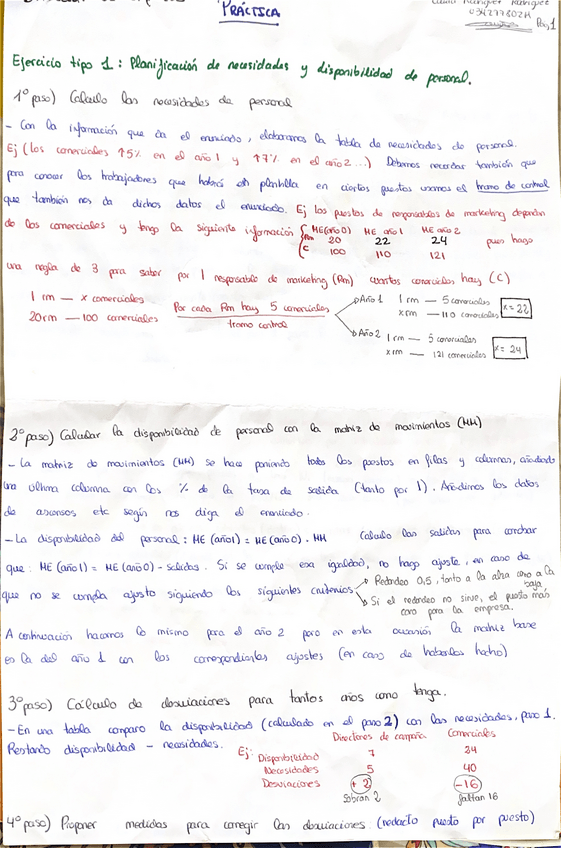 PRÁCTICA
Rodríguez
Pág 1
Ejercicio tipo 1: Planificación de necesidades y disponibilidad de personal.
1º paso) Cálculo las necesidades de personal
- Con la información que da el enunciado, elaboramos la tabla de necesidades de personal.
Ej (los comerciales ↑5% en el año 1 y ↑7% en el año 2...) Debemos recordar también que
para conocer los trabajadores que habrá en plantilla en ciertos puestos usamos el tramo de control
que también nos da dichos datos el enunciado. Ej los puestos de responsables de marketing dependen
de los comerciales y tengo la siguiente información { ME(año 0) ME año 1 ME año 2
Rm 20 22 24 pues hago
C 100 110 121
una regla de 3 para saber por 1 responsable de marketing (Rm) cuantos comerciales hay (C)
1 rm — x comerciales
20rm — 100 comerciales
Por cada Rm hay 5 comerciales
tramo control
Año 1 1 rm — 5 comerciales
x rm — 110 comerciales x = 22
Año 2 1 rm — 5 comerciales
x rm — 121 comerciales x = 24
2º paso) Calcular la disponibilidad de personal con la matriz de movimientos (MM)
- La matriz de movimientos (MM) se hace poniendo todos los puestos en filas y columnas, añadiendo
una última columna con los % de la tasa de salida (tanto por 1). Añadimos los datos
de ascensos etc según nos diga el enunciado.
- La disponibilidad del personal: ME (año1) = ME (año 0) . MM Calculo las salidas para comprobar
que: ME (año 1) = ME (año 0) - salidas. Si se cumple esa igualdad, no hago ajuste, en caso de
que no se cumpla ajusto siguiendo los siguientes criterios
Redondeo 0,5, tanto a la alza como a la baja
Si el redondeo no sirve, el puesto más
caro para la empresa.
A continuación hacemos lo mismo para el año 2 pero en esta ocasión la matriz base
es la del año 1 con los correspondientes ajustes (en caso de haberlos hecho)
3º paso) Cálculo de desviaciones para tantos años como tenga.
- En una tabla comparo la disponibilidad (calculado en el paso 2) con las necesidades, paso 1.
Restando disponibilidad - necesidades.
Ej: Directores de campaña Comerciales
Disponibilidad 7 24
Necesidades 5 40
Desviaciones +2 -16
Sobran 2 faltan 16
4º paso) Proponer medidas para corregir las desviaciones. (redacto puesto por puesto)